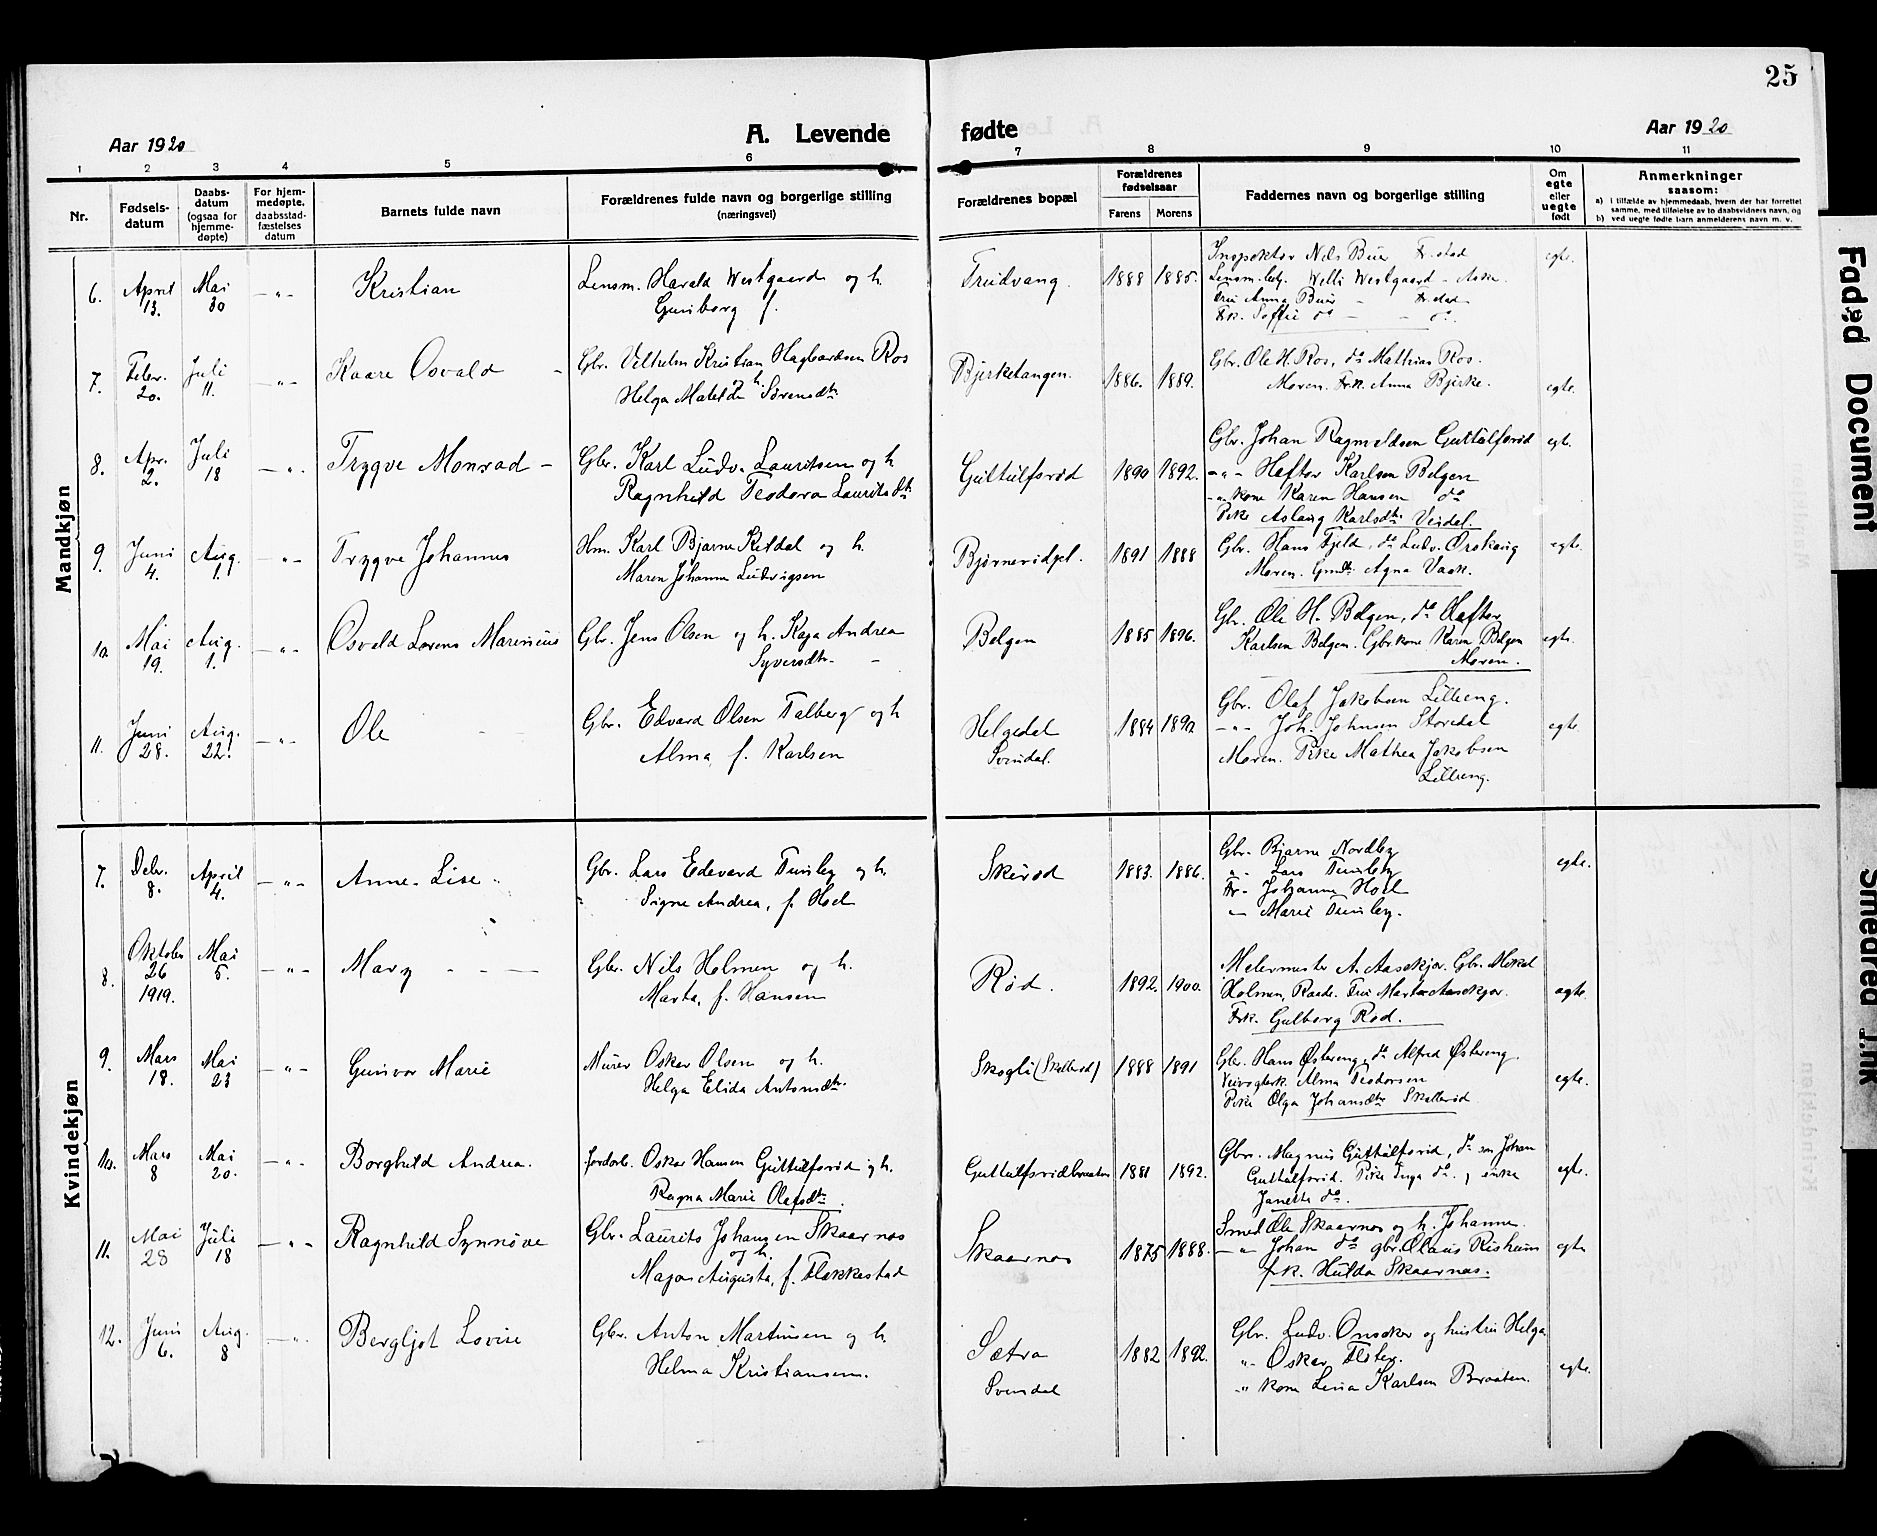 25
Aar 1920
A. Levende
fødte
Aar 1920
1 2 3 4 5 6 7 8 9 10 11
Nr.
Fødsels-
datum
Daabs-
datum
(ogsaa for
hjemme-
døpte)
For hjem-
medøpte,
daabsstad-
fæstelses
datum
Barnets fulde navn
Forældrenes fulde navn og borgerlige stilling
(næringsvei)
Forældrenes bopæl
Forældrenes
fødselsaar
Farens
Morens
Faddernes navn og borgerlige stilling
Om
egte
eller
uegte
født
Anmerkninger
saasom:
a) i tilfælde av hjemmedaab, hvem der har forrettet
samme, med tilføielse av to daabsvidners navn, og
b) ved uegte fødte barn anmelderens navn m. v.
Mandkjøn
6. April 13. Mai 30 — „ — Kristian
Lensm. Harald Westgaard og h.
Gunborg f.
Trudvang. 1888 1885.
Inspektør Nils Buer Fr.stad
Lensm.betj. Willi Westgaard - Aske.
Fru Anna Buer - Fr.stad
Frk. Soffie do — - do.
egte.
7. Febr. 20. Juli 11. — „ Kaare Osvald -
Gbr. Vilhelm Kristian Hagbardsen Ros
h. Helga Matilda Sørensdtr
Bjerketangen. 1886. 1889.
Gbr. Ole H. Ros, do Mathias Ros.
Moren. Frk. Anna Bjerke.
egte.
8. Apr. 2. Juli 18 — „ . Trygve Monrad -
Gbr. Karl Ludv. Lauritsen og h
Ragnhild Teodora Lauritsdt.
Guttulfsrød 1890 1892.
Gbr. Johan Ragnvldsen Guttulfsrød
— „ - Heftor Karlsen Belgen
- „ kone Karen Hansen do
Pike Aslaug Karlsdtr Veidal.
egt.
9. Juni 4. Aug. 1. — „ — Trygve Johannes
Hm. Karl Bjarne Kildal og h.
Maren Johanne Ludvigsen
Bjørnerødpl. 1891 1888
Gbr. Hans Fjeld, do Ludv. Orskaug
Moren. Agna Vaak.
egte.
10. Mai 19. Aug. 1. — „ - Osvald Lorens Marinius
Gbr. Jens Olsen og h. Kaja Andrea
Syversdtr. -
Belgen 1885 1896.
Gbr. Ole H. Belgen, do Haftor
Karlsen Belgen. Gbrkone Karen Belgen
Moren.
egte.
11. Juni 28. Aug. 22. — „ - Ole
Gbr. Edvard Olsen Talberg og h
Alma, f. Karlsen
Helgedal
Svindal. 1884 1892
Gbr. Olaf Jakobsen Lilleng.
— „ - Joh. Johnsen Storedal
Moren. Pike Mathea Jakobsen
Lilleng.
egte
Kvindekjøn
7. Debr. 8. April 4. — „ — Anne-Lise.
Gbr. Lars Edevard Tunsley og h.
Signe Andrea, f. Hoel
Skirød 1883. 1886.
Gbr. Bjarne Nordby
„ - Lars Tunsby
Fr. Johanne Hoel
— Marie Tunsley.
egte.
8. Oktober 26 1919. Mai 5. — „ — Mary - - —
Gbr. Nils Holmen og h.
Marta, f. Hansen
Rød. 1892. 1900.
Melermester A. Aasekjær. Gbr. Mikal
Holmen, Raade. Fru Marta Aasekjær.
Frk. Gulborg Rød.
egte.
9. Mars 18. Mai 23 — „ — Gunvor Marie
Murer Oskar Olsen og h.
Helga Elida Antonsdtr.
Skogli (Skallerød) 1888 1891
Gbr. Hans Østereng, do Alfred Østereng.
Alma Teodorsen
Pike Olga Johansdtr Skallerød
egte.
10. Mars 8 Mai 20. — „ . Borghild Andrea.
Jordarb. Oskar Hansen Guttulfsrød og h.
Ragna Marie Olafsdtr.
Guttulfsrødbraaten 1881 1892.
Gbr. Magnus Guttulfsrød, do søn Johan
Guttulfsrød. Pike Inga do., enke
Janette do.
egte.
11. Mai 28 Juli 18 — „ - Ragnhild Synnøve
Gbr. Laurits Johansen Skaarnes
og h.
Maja Augusta, f. Flekkestad
Skaarnes 1875 1888.
Smed Ole Skaarnes og h. Johanne.
— „ Johan do gbr. Olaus Risheim
frk. Hulda Skaarnes.
egte
12. Juni 6. Aug. 8 — „ . Bergljot Lovise
Gbr. Anton Martinsen og h.
Helma Kristiansen.
Sætra
Svendal 1882 1892.
Gbr. Ludv. Onsaker og hustru Helga
„ - Oskar Flaten.
„ kone Lina Karlsen Braaten.
egte.
Føded Document
Smedrød J.nk